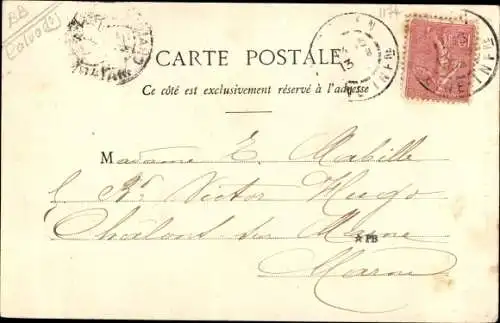 BB
(Calvados)
1174
CARTE POSTALE
Ce côté est exclusivement réservé à l'adresse
Madame E. Mabille
Bd Victor Hugo
Chalons sur Marne
★ PB
Marne